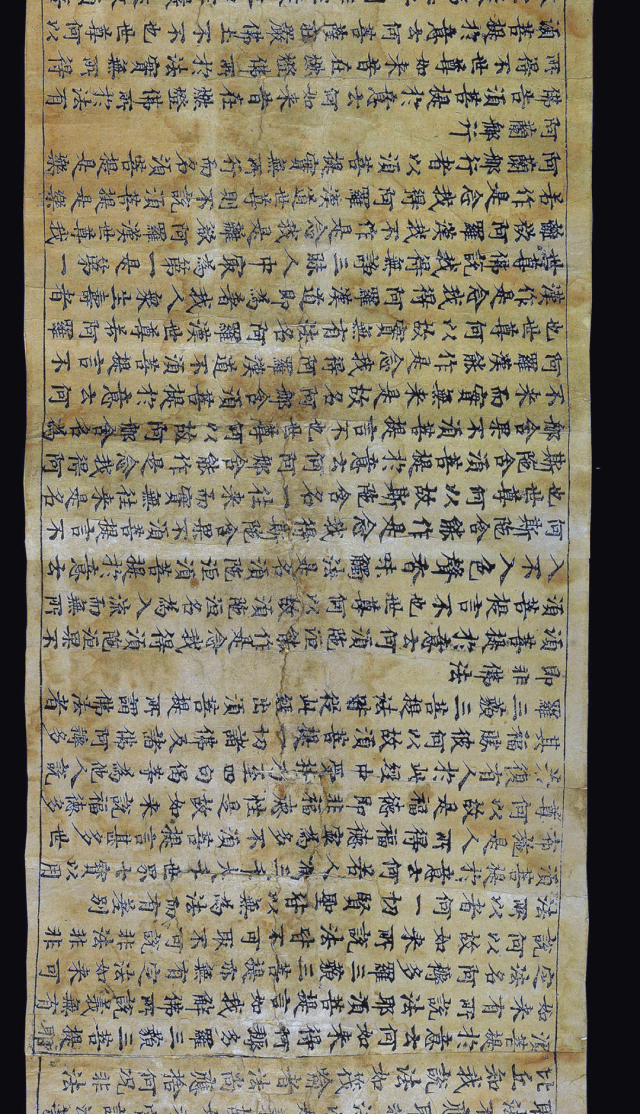 比丘知我說法如筏喻者法尚應捨何況非法
須菩提於意云何如來得阿耨多羅三藐三菩提耶
如來有所說法耶須菩提言如我解佛所說義無有
定法名阿耨多羅三藐三菩提亦無有定法如來可
說何以故如來所說法皆不可取不可說非法非非
法所以者何一切賢聖皆以無為法而有差別
須菩提於意云何若人滿三千大千世界七寶以用
布施是人所得福德寧為多不須菩提言甚多世
尊何以故是福德即非福德性是故如來說福德多
若復有人於此經中受持乃至四句偈等為他人說
其福勝彼何以故須菩提一切諸佛及諸佛阿耨多
羅三藐三菩提法皆從此經出須菩提所謂佛法者
即非佛法
須菩提於意云何須陀洹能作是念我得須陀洹果不
須菩提言不也世尊何以故須陀洹名為入流而無所
入不入色聲香味觸法是名須陀洹須菩提於意云
何斯陀含能作是念我得斯陀含果不須菩提言不
也世尊何以故斯陀含名一往來而實無往來是名
斯陀含須菩提於意云何阿那含能作是念我得阿
那含果不須菩提言不也世尊何以故阿那含名為
不來而實無來是故名阿那含須菩提於意云何
阿羅漢能作是念我得阿羅漢道不須菩提言不
也世尊何以故實無有法名阿羅漢世尊若阿羅
漢作是念我得阿羅漢道即為著我人眾生壽者
世尊佛說我得無諍三昧人中最為第一是第一
離欲阿羅漢我不作是念我是離欲阿羅漢世尊我
若作是念我得阿羅漢道世尊則不說須菩提是樂
阿蘭那行者以須菩提實無所行而名須菩提是樂
阿蘭那行
佛告須菩提於意云何如來昔在燃燈佛所於法有
所得不世尊如來在昔燃燈佛所於法實無所得
須菩提於意云何菩薩莊嚴佛土不不也世尊何以